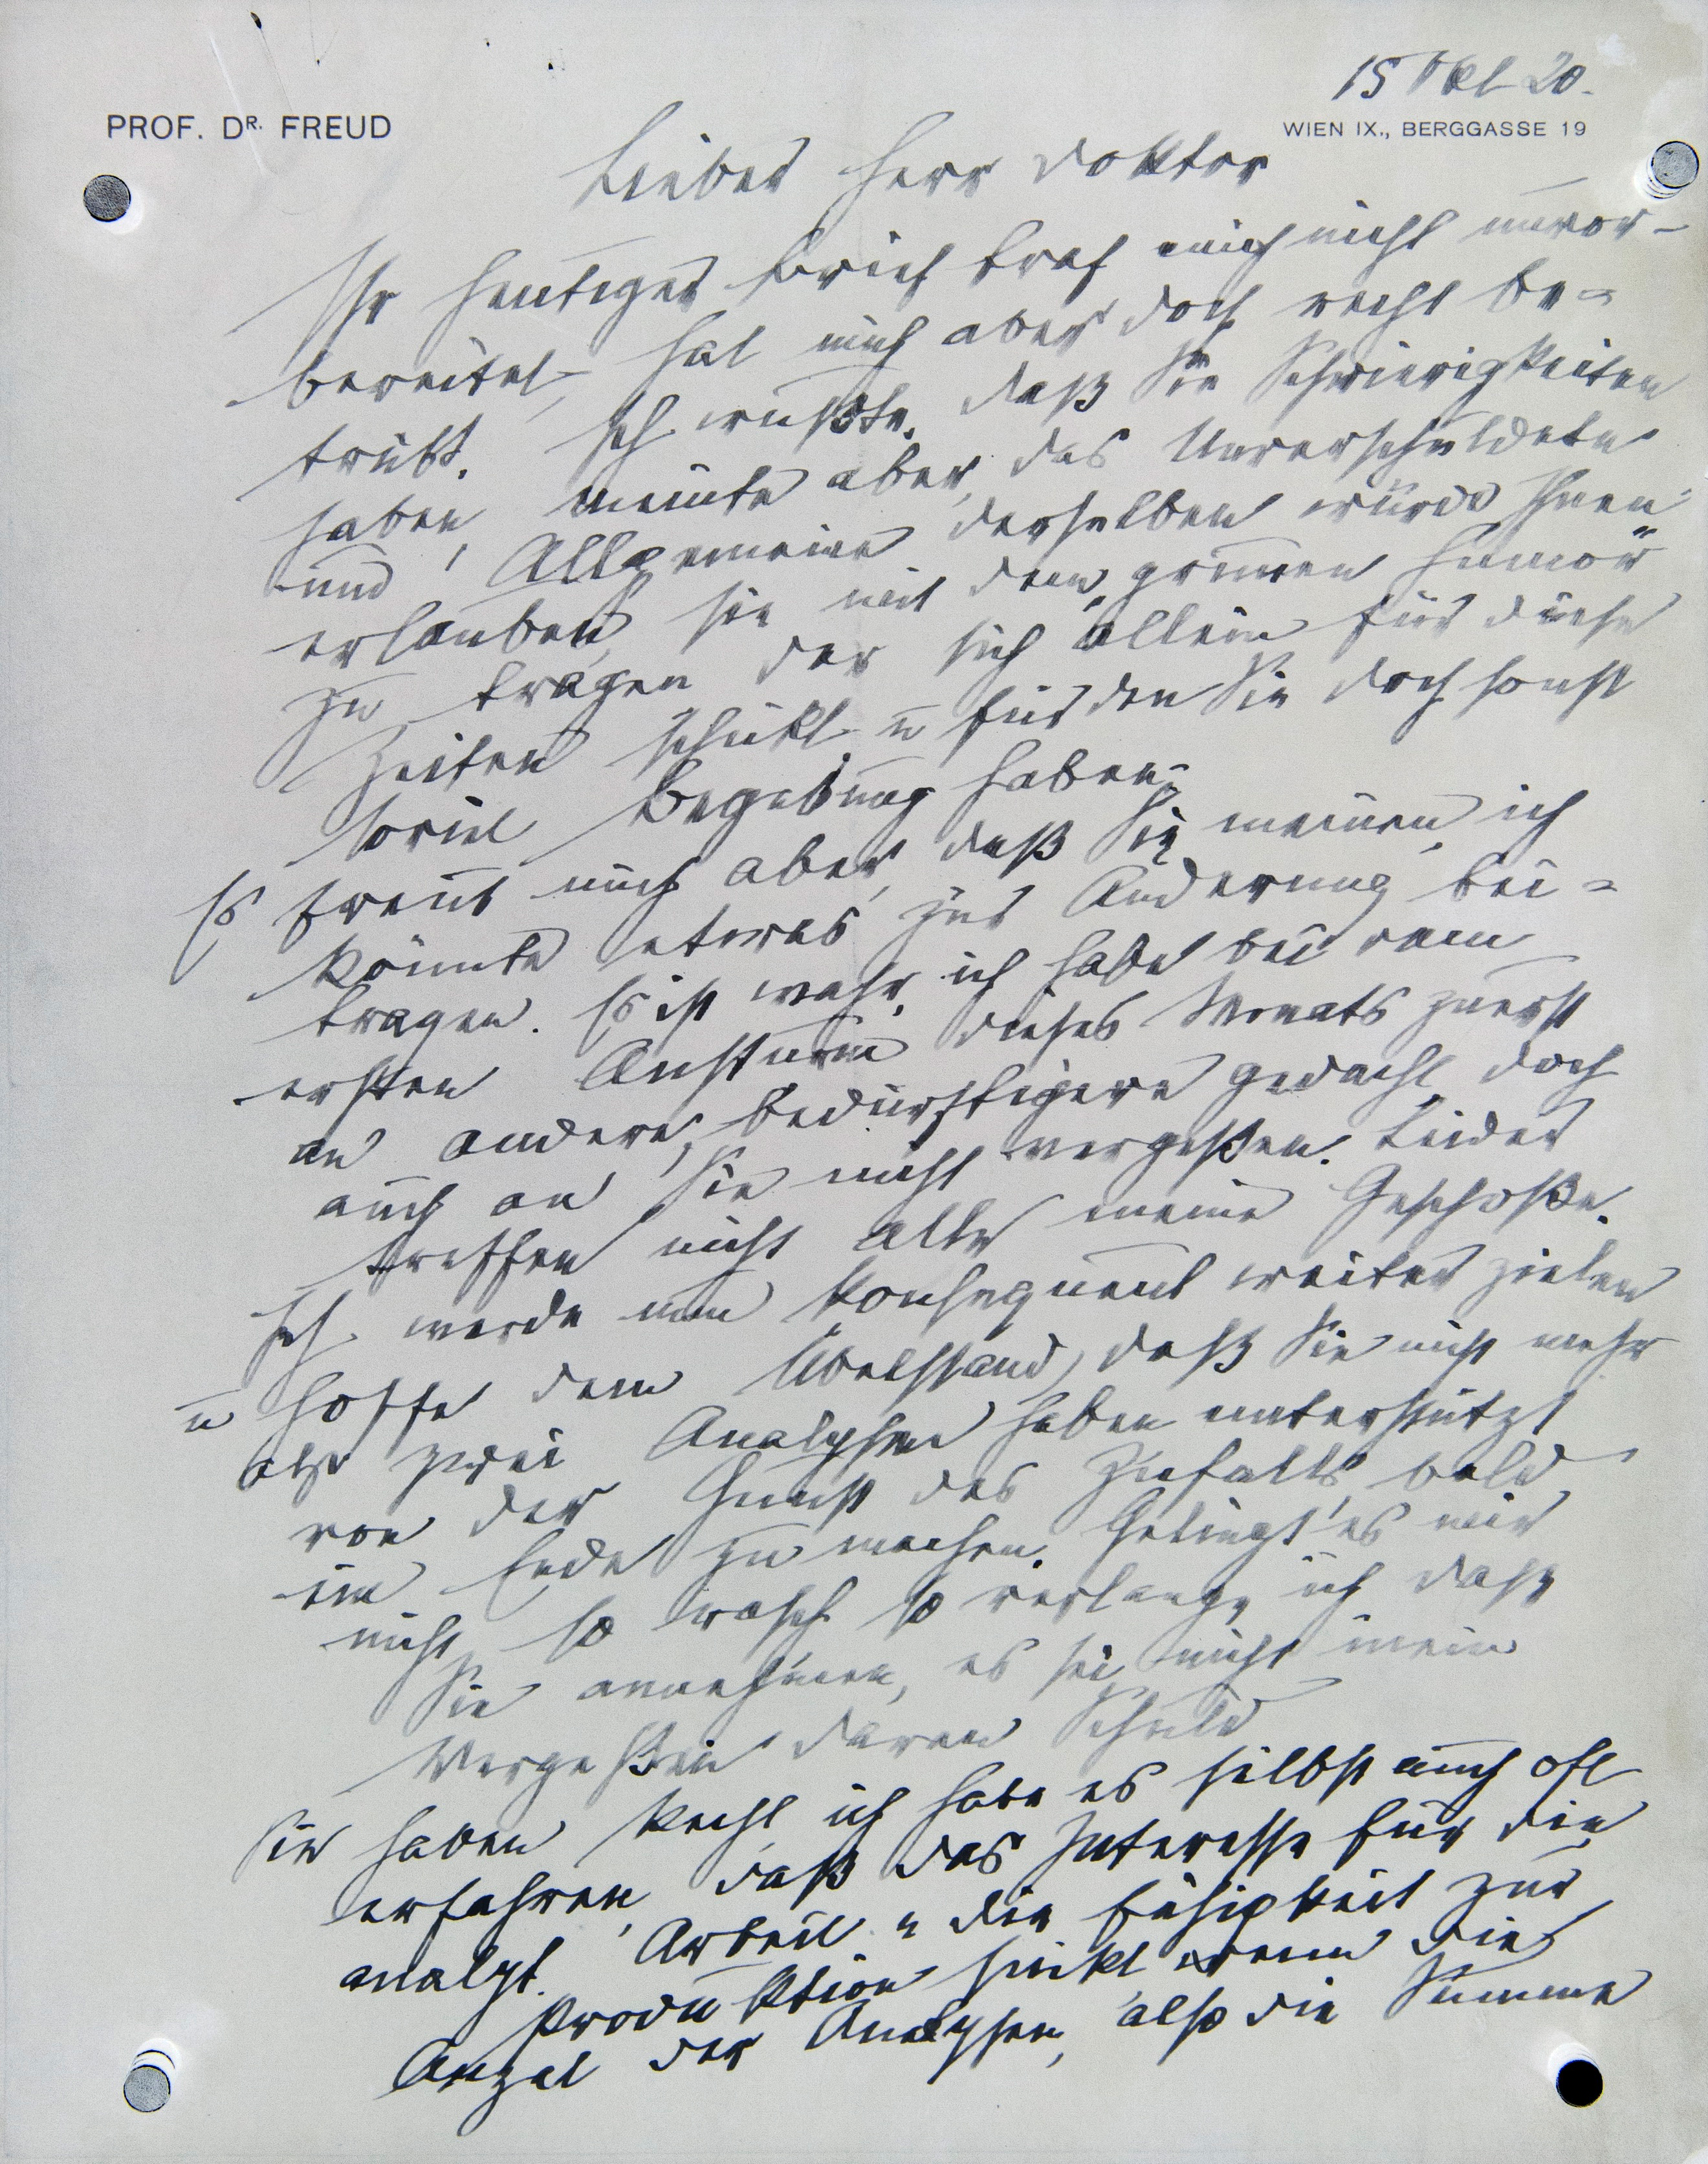 15 Okt 20.
PROF. DR. FREUD
WIEN IX., BERGGASSE 19
Lieber Herr Doktor
Ihr heutiger Brief traf mich nicht unvor-
bereitet, hat mich aber doch recht be-
trübt. Ich wußte, daß Sie Schwierigkeiten
haben, meinte aber, das Unverschuldete
und Allgemeine derselben würde Ihnen
erlauben, sie mit dem „grimmen Humor“
zu tragen, der sich allein für diese
Zeiten schickt u für den Sie doch sonst
soviel Begabung haben.
Es freut mich aber, daß Sie meinen, ich
könnte etwas zur Änderung bei-
tragen. Es ist wahr, ich habe bei dem
ersten Ansturm dieses Monats zuerst
an andere, bedürftigere gedacht, doch
auch an Sie nicht vergeßen. Leider
treffen nicht alle meine Geschoße.
Ich werde nun konsequent weiter zielen
u hoffe dem Übelstand, daß Sie nicht mehr
als zwei Analysen haben unterstützt
von der Gunst des Zufalls, bald
ein Ende zu machen. Gelingt es mir
nicht so rasch so verlange ich daß
Sie annehmen, es sei nicht mein
Vergeßen daran Schuld
Sie haben Recht, ich habe es selbst auch oft
erfahren, daß das Interesse für die
analyt. Arbeit u die Fähigkeit zur
Produktion sinkt wenn die
Anzal der Analysen, also die Summe